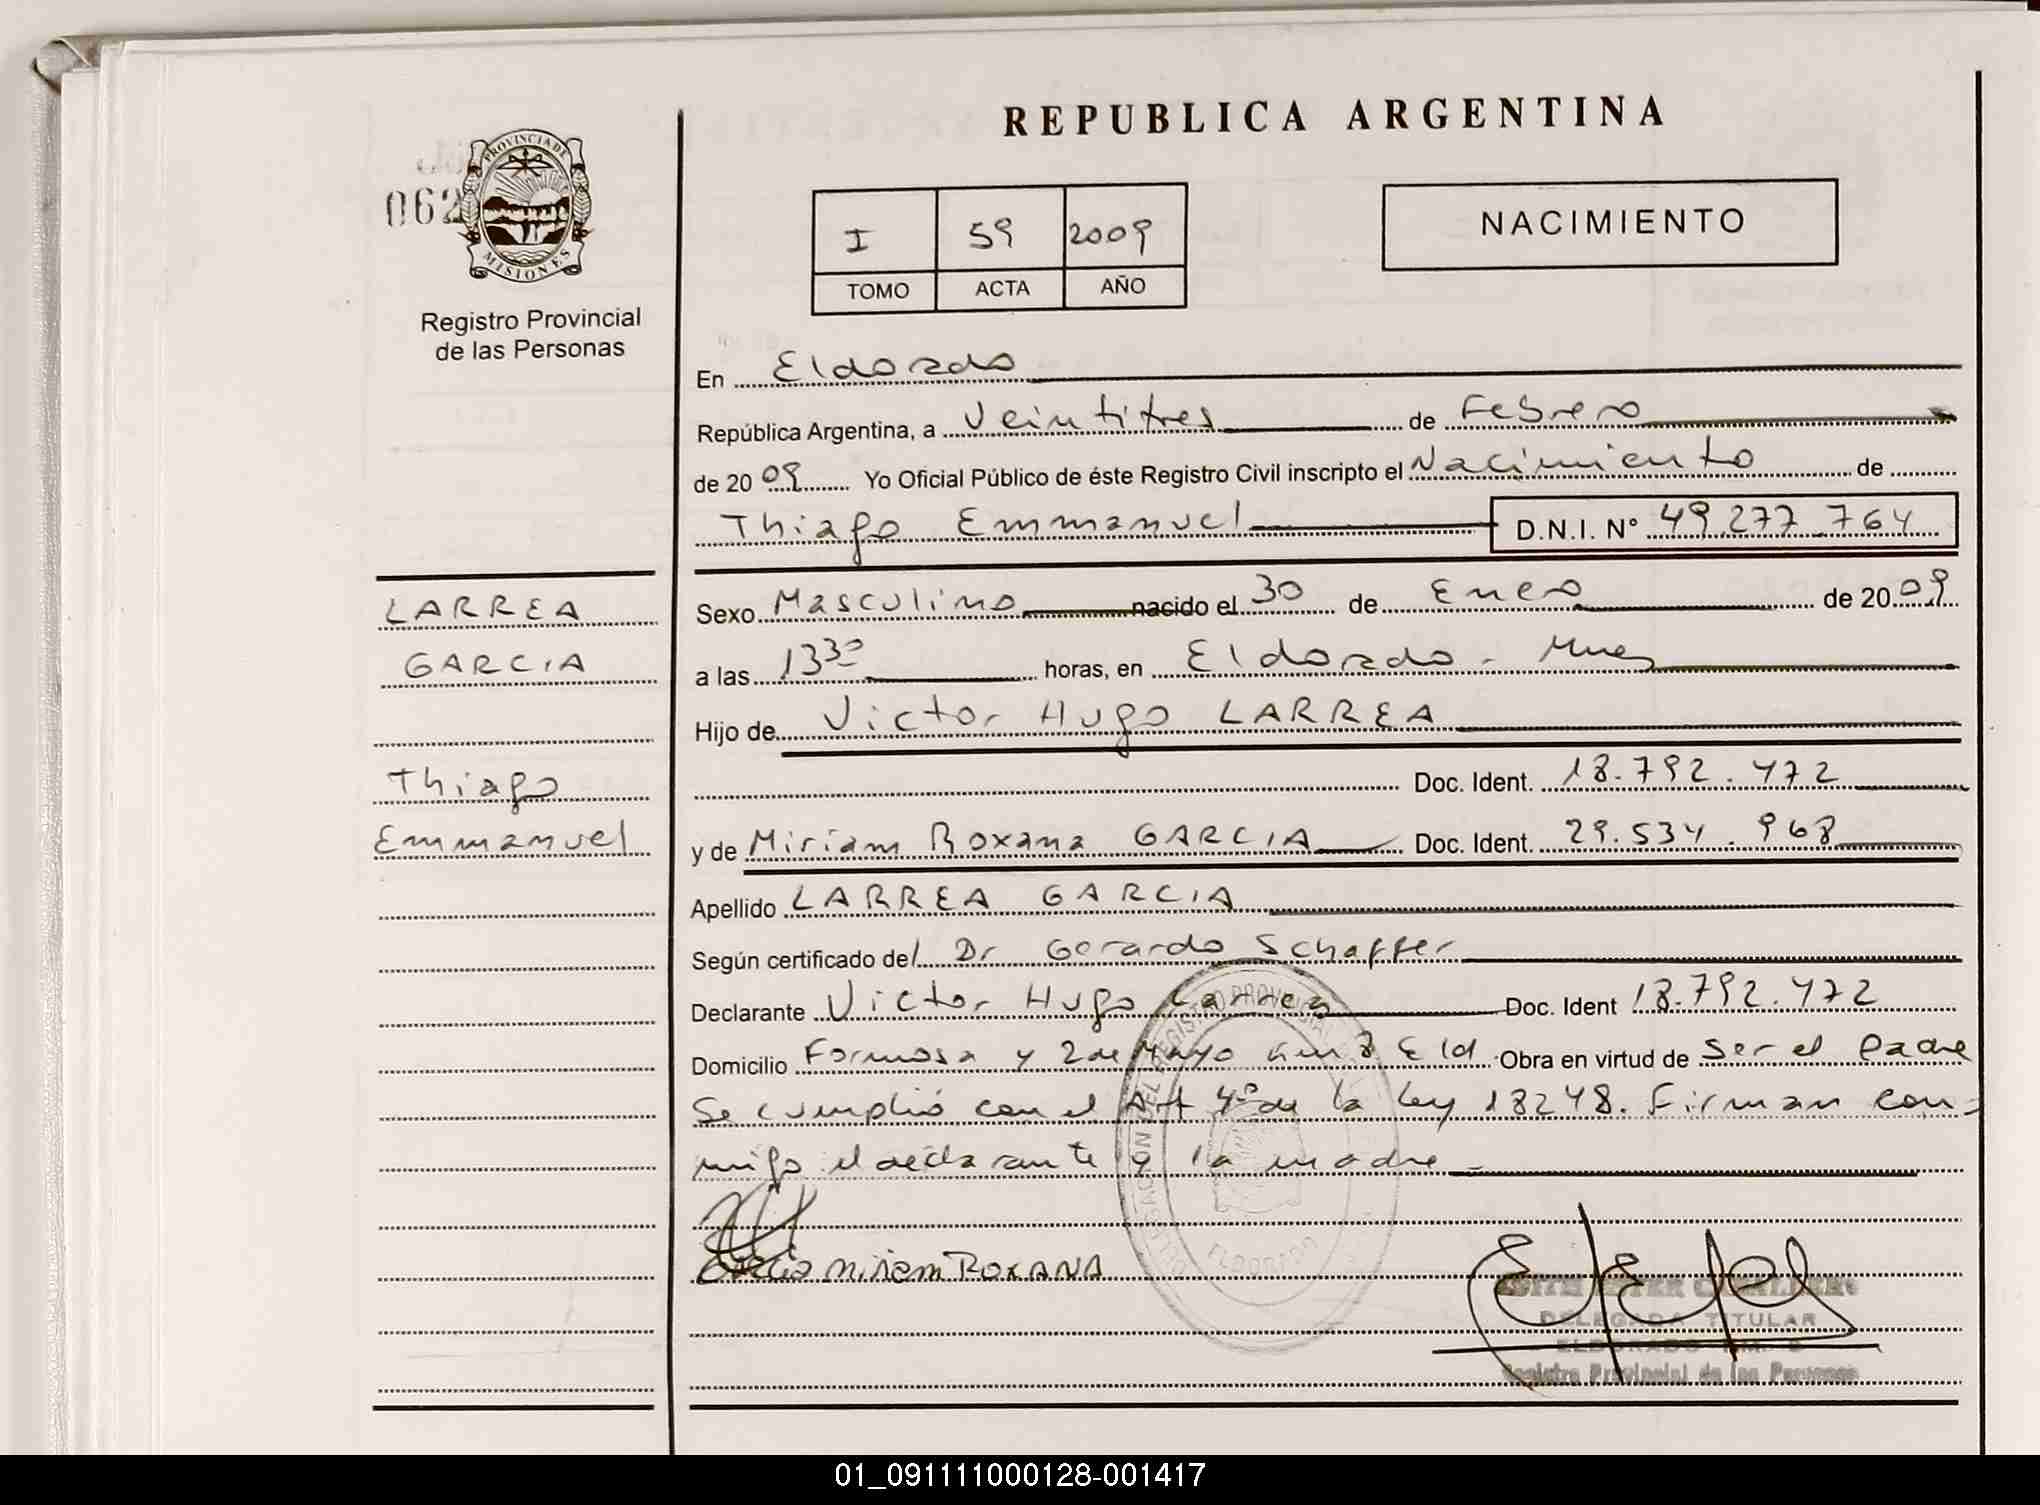 REPUBLICA ARGENTINA
PROVINCIA DE
MISIONES
062
Registro Provincial
de las Personas
I 59 2009
TOMO ACTA AÑO
NACIMIENTO
En Eldorado
República Argentina, a Veintitres de Febrero
de 2009 Yo Oficial Público de éste Registro Civil inscripto el Nacimiento de
Thiago Emmanuel D.N.I. Nº 49.277.764
LARREA
GARCIA
Thiago
Emmanuel
Sexo Masculino nacido el 30 de Enero de 2009
a las 13 30 horas, en Eldorado - Mnes
Hijo de Victor Hugo LARREA
Doc. Ident. 18.792.472
y de Miriam Roxana GARCIA Doc. Ident. 29.534.968
Apellido LARREA GARCIA
Según certificado del Dr Gerardo Schaffer
Declarante Victor Hugo Larrea Doc. Ident 18.792.472
Domicilio Formosa y 2 de Mayo km 8 Eld Obra en virtud de Ser el Padre
Se cumplió con el Art 4º de la Ley 18248. Firman con-
migo el declarante y la madre -
Garcia Miriam ROXANA
ELDORADO
DELEGADA TITULAR
ELDORADO KM. 8
Registro Provincial de las Personas
01_091111000128-001417